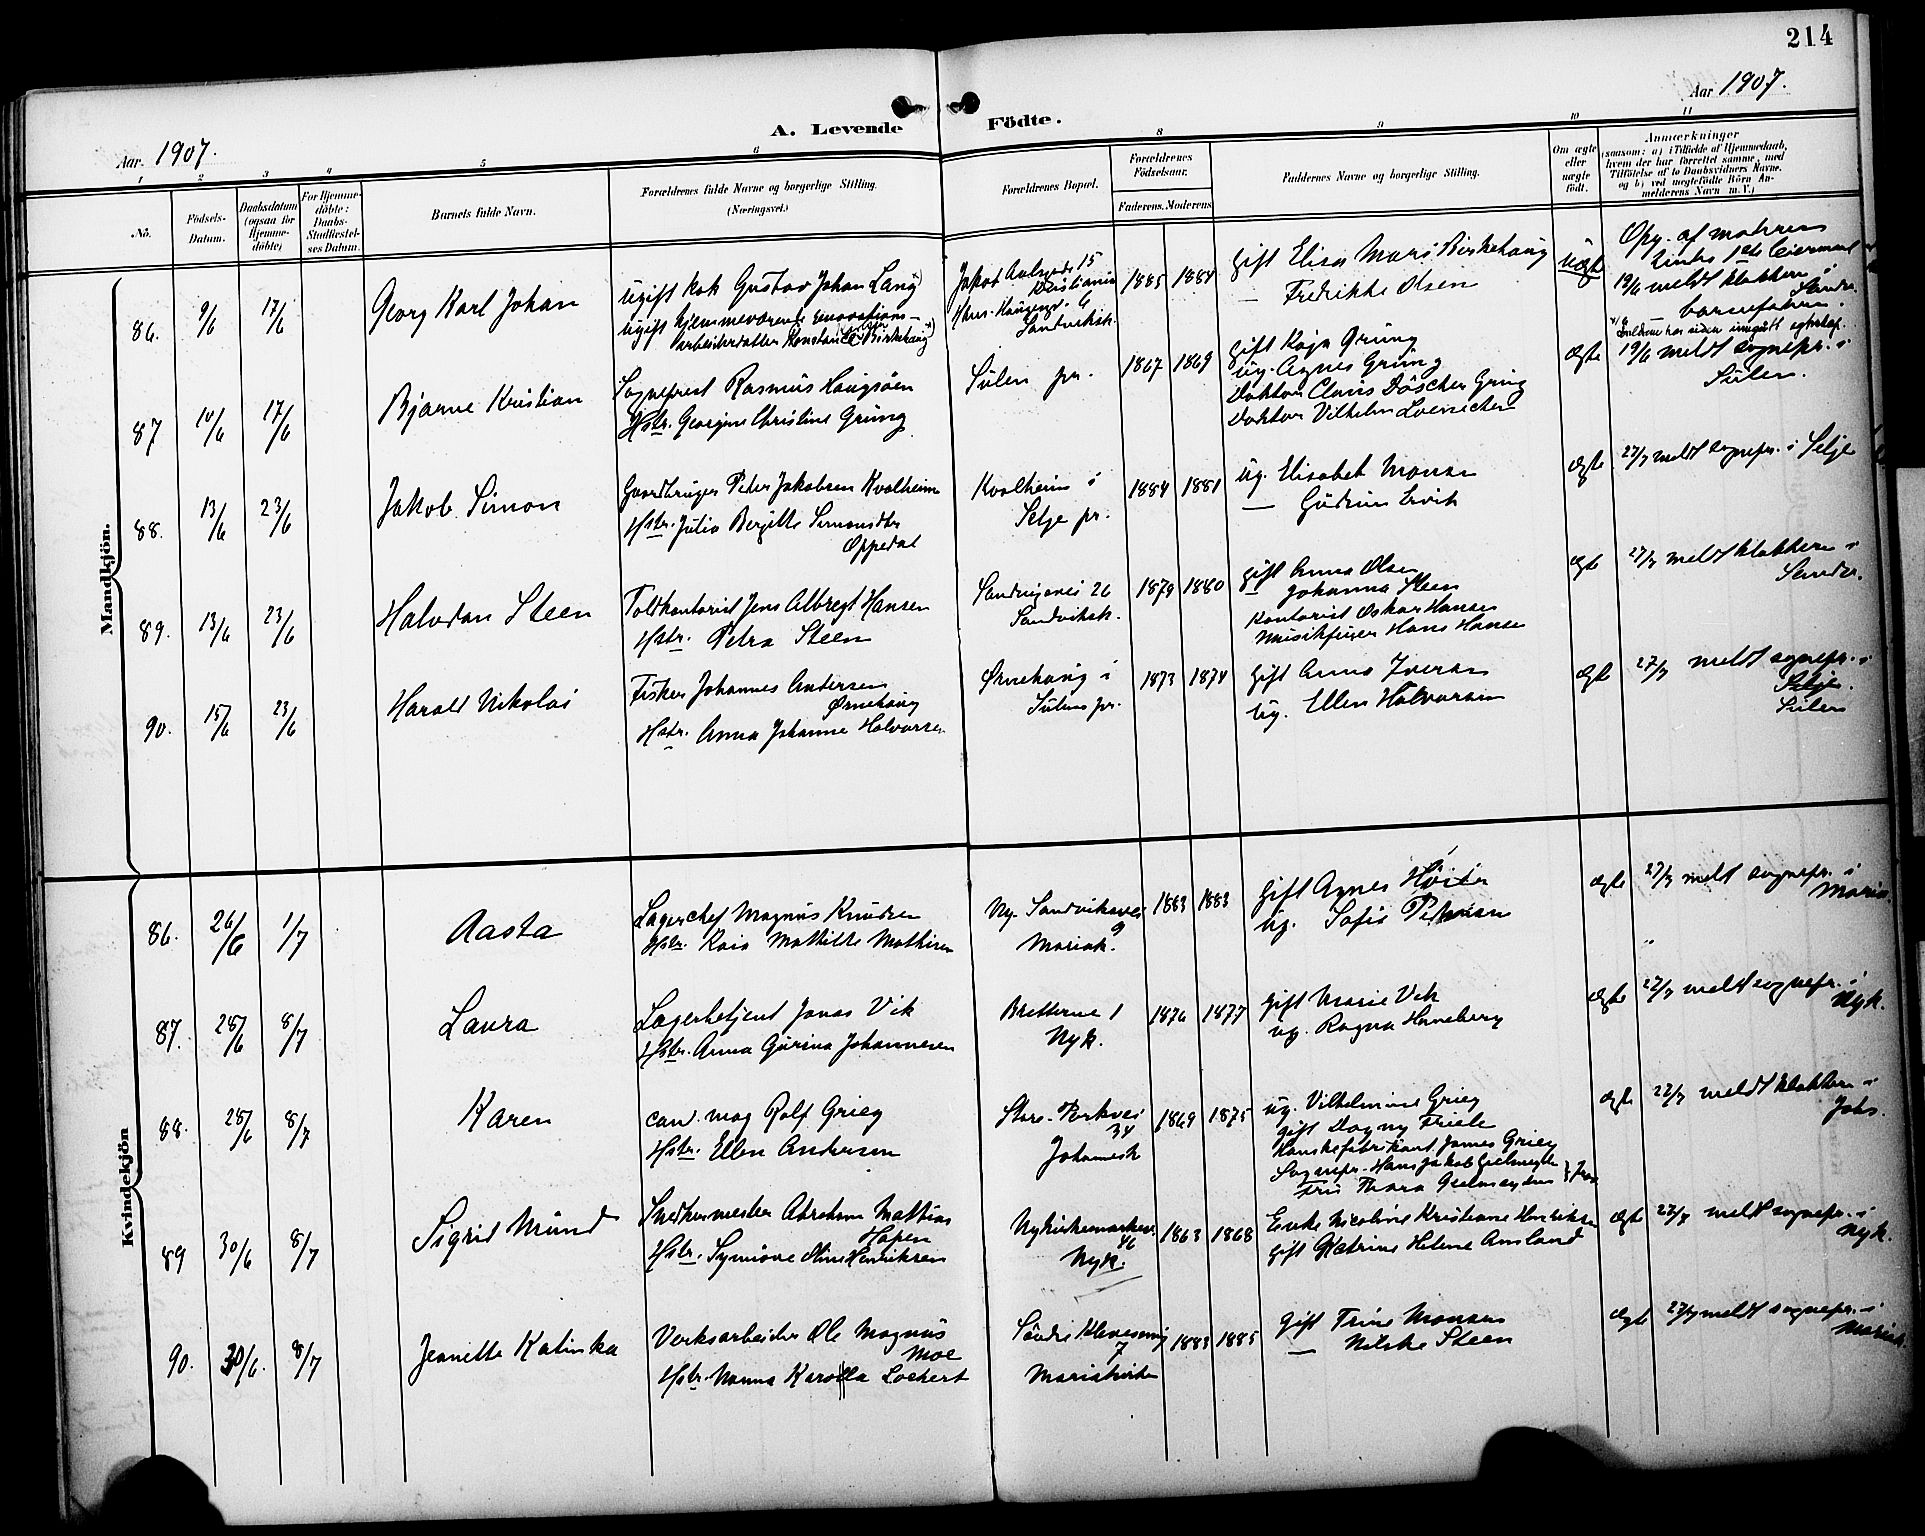 214
Aar 1907.
Aar. 1907.
A. Levende Födte.
1 2 3 4 5 6 8 9 10 11
No.
Födsels-
Datum.
Daabsdatum
(ogsaa for
Hjemme-
döbte)
For Hjemme-
döbte:
Daabs-
Stadfæstel-
ses Datum.
Barnets fulde Navn.
Forældrenes fulde Navne og borgerlige Stilling.
(Næringsvei.)
Forældrenes Bopæl.
Forældrenes
Födselsaar.
Faderens. Moderens
Faddernes Navne og borgerlige Stilling.
Om ægte
eller
uægte
födt.
Anmærkninger
(saasom: a) i Tilfælde af Hjemmedaab,
hvem der har forrettet samme, med
Tilföielse af to Daabsvidners Navne,
og b) ved uægtefödte Börn An-
melderens Navn m. V.)
Mandkjön.
86. 9/6 17/6
Georg Karl Johan
Ugift kok Gustav Johan Lang
ugift hjemmeværende renovations-
arbeiderdatter Konstance Birkehaug
Jakob Aalsgade 15
Kristiania
Sandviksk.
1885 1884
Gift Elisa Mari Birkehaug
— Fredrikke Olsen
Uægte
Opg. af moderen
19/6 meldt klokkeren i
Sandv.
barnefaderen.
87 10/6 17/6
Bjarne Kristian
Sogneprest Rasmus Haugsöen
Hstr. Georgine Christine Grung
Sulen pr.
1867 1869
Gift Kaja Grung
Ug. Agnes Grung
Doktor Claus Döscher Grung
Doktor Vilhelm Loennechen
Ægte
19/6 meldt sognepr. i
Sulen.
88. 13/6 23/6
Jakob Simon
Gaardbruger Peder Jakobsen Kvalheim
Hstr. Julia Bergitte Simonsdtr
Oppedal
Kvalheim i
Selje pr.
1884 1881
Ug. Elisabet Monsen
— Gudrun Ervik
Ægte
27/7 meldt sognepr. i Selje
89. 13/6 23/6
Halvdan Steen
Toldkontorist Jens Albregt Hansen
Hstr. Petra Steen
Sandvigsvei 26
Sandviksk.
1879 1880
Gift Anna Olsen
Johanna Steen
Kontorist Oskar Hansen
Musikfuger Hans Hansen
Ægte
27/7 meldt klokkeren i
Sandv.
90. 15/6 23/6
Harald Nikolai
Fisker Johannes Andersen
Ørnehaug
Hstr. Anna Johanne Halvorsen
Ørnehaug i
Sulens pr.
1873 1874
Gift Anna Iversen
Ug. Ellen Halvorsen
Ægte
27/7 meldt sognepr. i
Selje.
Sulen
Kvindekjön
86. 26/6 1/7
Aasta
Lagerchef Magnus Knudsen
Hstr. Kaia Mathilde Mathisen
Ny. Sandviksvei
9
Mariak.
1883 1883
Gift Agnes Høier
Ug. Sofie Petersen
Ægte
27/7 meldt sognepr. i
Mariak.
87. 28/6 8/7
Laura
Lagerbetjent Jonas Vik
Hstr. Anna Gurina Johannesen
Bretterne 1
Nyk.
1876 1877
Gift Marie Vik
Ug. Ragna Haneberg
Ægte
27/7 meldt sognepr. i
Nyk.
88. 28/6 8/7
Karen
cand. mag Rolf Grieg
Hstr. Ellen Andersen
Store Parkvei
34
Johannesk
1869 1875
Ug. Vilhelmine Grieg
Gift Dagny Friele
Hanskefabrikant James Grieg
Sognepr. Hans Jakob Gjelmuyden
Ægte
27/7 meldt klokkeren i
Johs.
89 30/6 8/7
Sigrid Mund
Snedkermester Abraham Mattias
Hopen
Hstr. Synnöve Oline Henriksen
Nykirkemarksv.
46
Nyk.
1863 1868
Enke Nicoline Kristiane Henriksen
Gift Katrine Helene Amland
Ægte
27/7 meldt sognepr. i
Nyk.
90. 30/6. 8/7
Jeanette Katinka
Verksarbeider Ole Magnus
Moe
Hstr. Nanna Karolla Lockert
Søndre Klevesmug
7
Mariakirke
1883 1885
Gift Trine Monsen
— Nilske Steen
Ægte
27/7 meldt sognepr. i
Mariak.